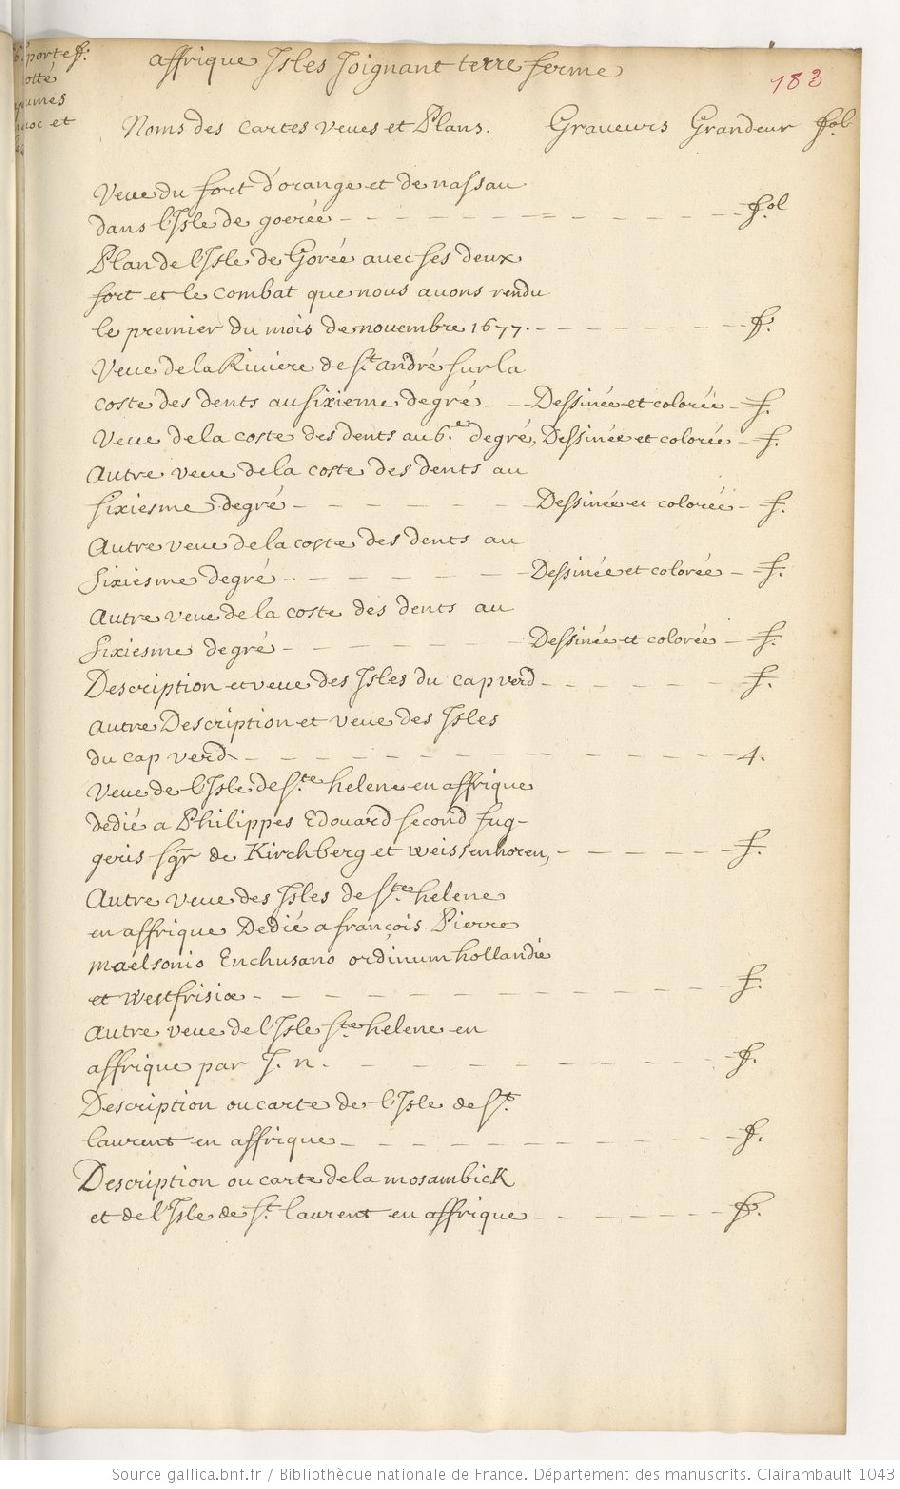 portef.
otté
umes
oc et
affrique Isles Joignant terre ferme
183
Noms des cartes veues et Plans. Graveurs Grandeur fol.
Veue du fort d'orange et de nassau
dans l'Isle de goerée - - - - - - - - - fol
Plan de l'Isle de Gorée avec ses deux
fort et le combat que nous avons rendu
le premier du mois de novembre 1677. - - - - - - f.
Veue de la Riviere de St. andré sur la
coste des dents au sixieme degré - Dessinée et colorée - f.
Veue de la coste des dents au 6.e degré, Dessinée et colorée - f.
Autre veue de la coste des dents au
sixiesme degré - - - - - - Dessinée et colorée - f.
Autre veue de la coste des dents au
sixiesme degré - - - - - - Dessinée et colorée - f.
Autre veue de la coste des dents au
sixiesme degré - - - - - - Dessinée et colorée - f.
Description et veue des Isles du cap verd - - - - - f.
autre Description et veue des Isles
du cap verd - - - - - - - - - - - - 4.
Veue de l'Isle de Ste. helene en affrique
dedié a Philippes Edouard second fug-
geris sgr de Kirchberg et weissenhoren, - - - - - f.
Autre veue des Isles de Ste. helene
en affrique Dedié a françois Pierre
maelsonio Enchusano ordinum hollandie
et Westfrisiæ - - - - - - - - - - - - f.
Autre veue de l'Isle Ste. helene en
affrique par J. n. - - - - - - - - - f.
Description ou carte de l'Isle de St.
laurent en affrique - - - - - - - - - f.
Description ou carte de la mosambick
et de l'Isle de St. laurent en affrique - - - - - f.
Source gallica.bnf.fr / Bibliothèque nationale de France. Département des manuscrits. Clairambault 1043